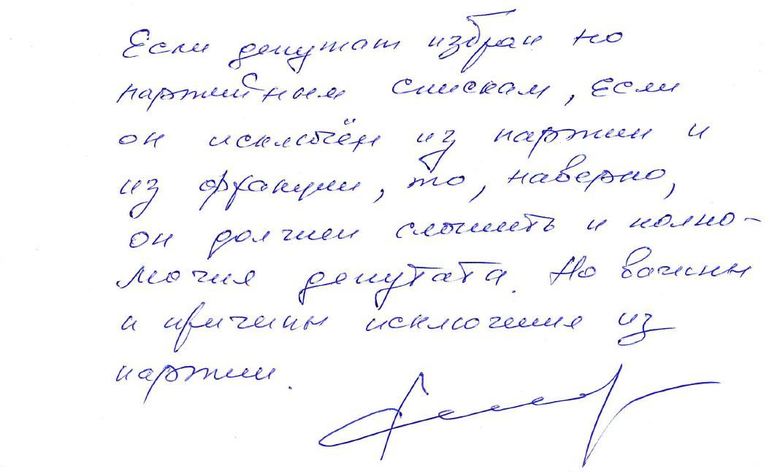 Если депутат избран по
партийным спискам, если
он исключён из партии и
из фракции, то, наверно,
он должен сложить и полно-
мочия депутата. Но важны
и причины исключения из
партии.